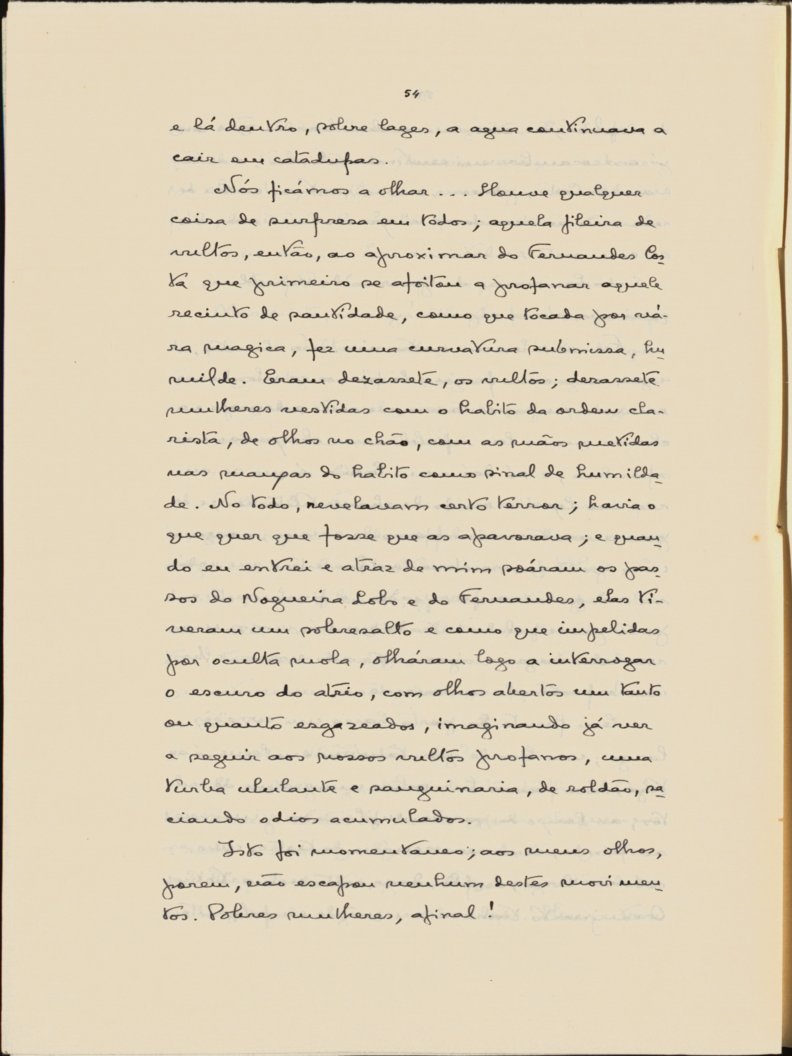 54
e lá dentro, sobre lages, a agua continuava a
cair em catadupas.
Nós ficámos a olhar... Houve qualquer
coisa de surpresa em todos; aquela fileira de
vultos, então, ao aproximar do Fernandes Cos-
ta que primeiro se afoitou a profanar aquele
recinto de santidade, como que tocada por vá-
ra magica, fez uma curvatura submissa, hu-
milde. Eram dezassete, os vultos; dezassete
mulheres vestidas com o habito da ordem cla-
rista, de olhos no chão, com as mãos metidas
nas mangas do habito como sinal de humilda-
de. No todo, revelavam certo terror; havia o
que quer que fosse que as apavorava; e quan-
do eu entrei e atraz de mim soáram os pas-
sos do Nogueira Lobo e do Fernandes, elas ti-
veram um sobresalto e como que impelidas
por oculta mola, olháram logo a interrogar
o escuro do atrio, com olhos abertos um tanto
ou quanto esgazeados, imaginando já ver
a seguir aos nossos vultos profanos, uma
turba ululante e sanguinaria, de roldão, sa-
ciando odios acumulados.
Isto foi momentaneo; aos meus olhos,
porem, não escapou nenhum destes movimen-
tos. Pobres mulheres, afinal!